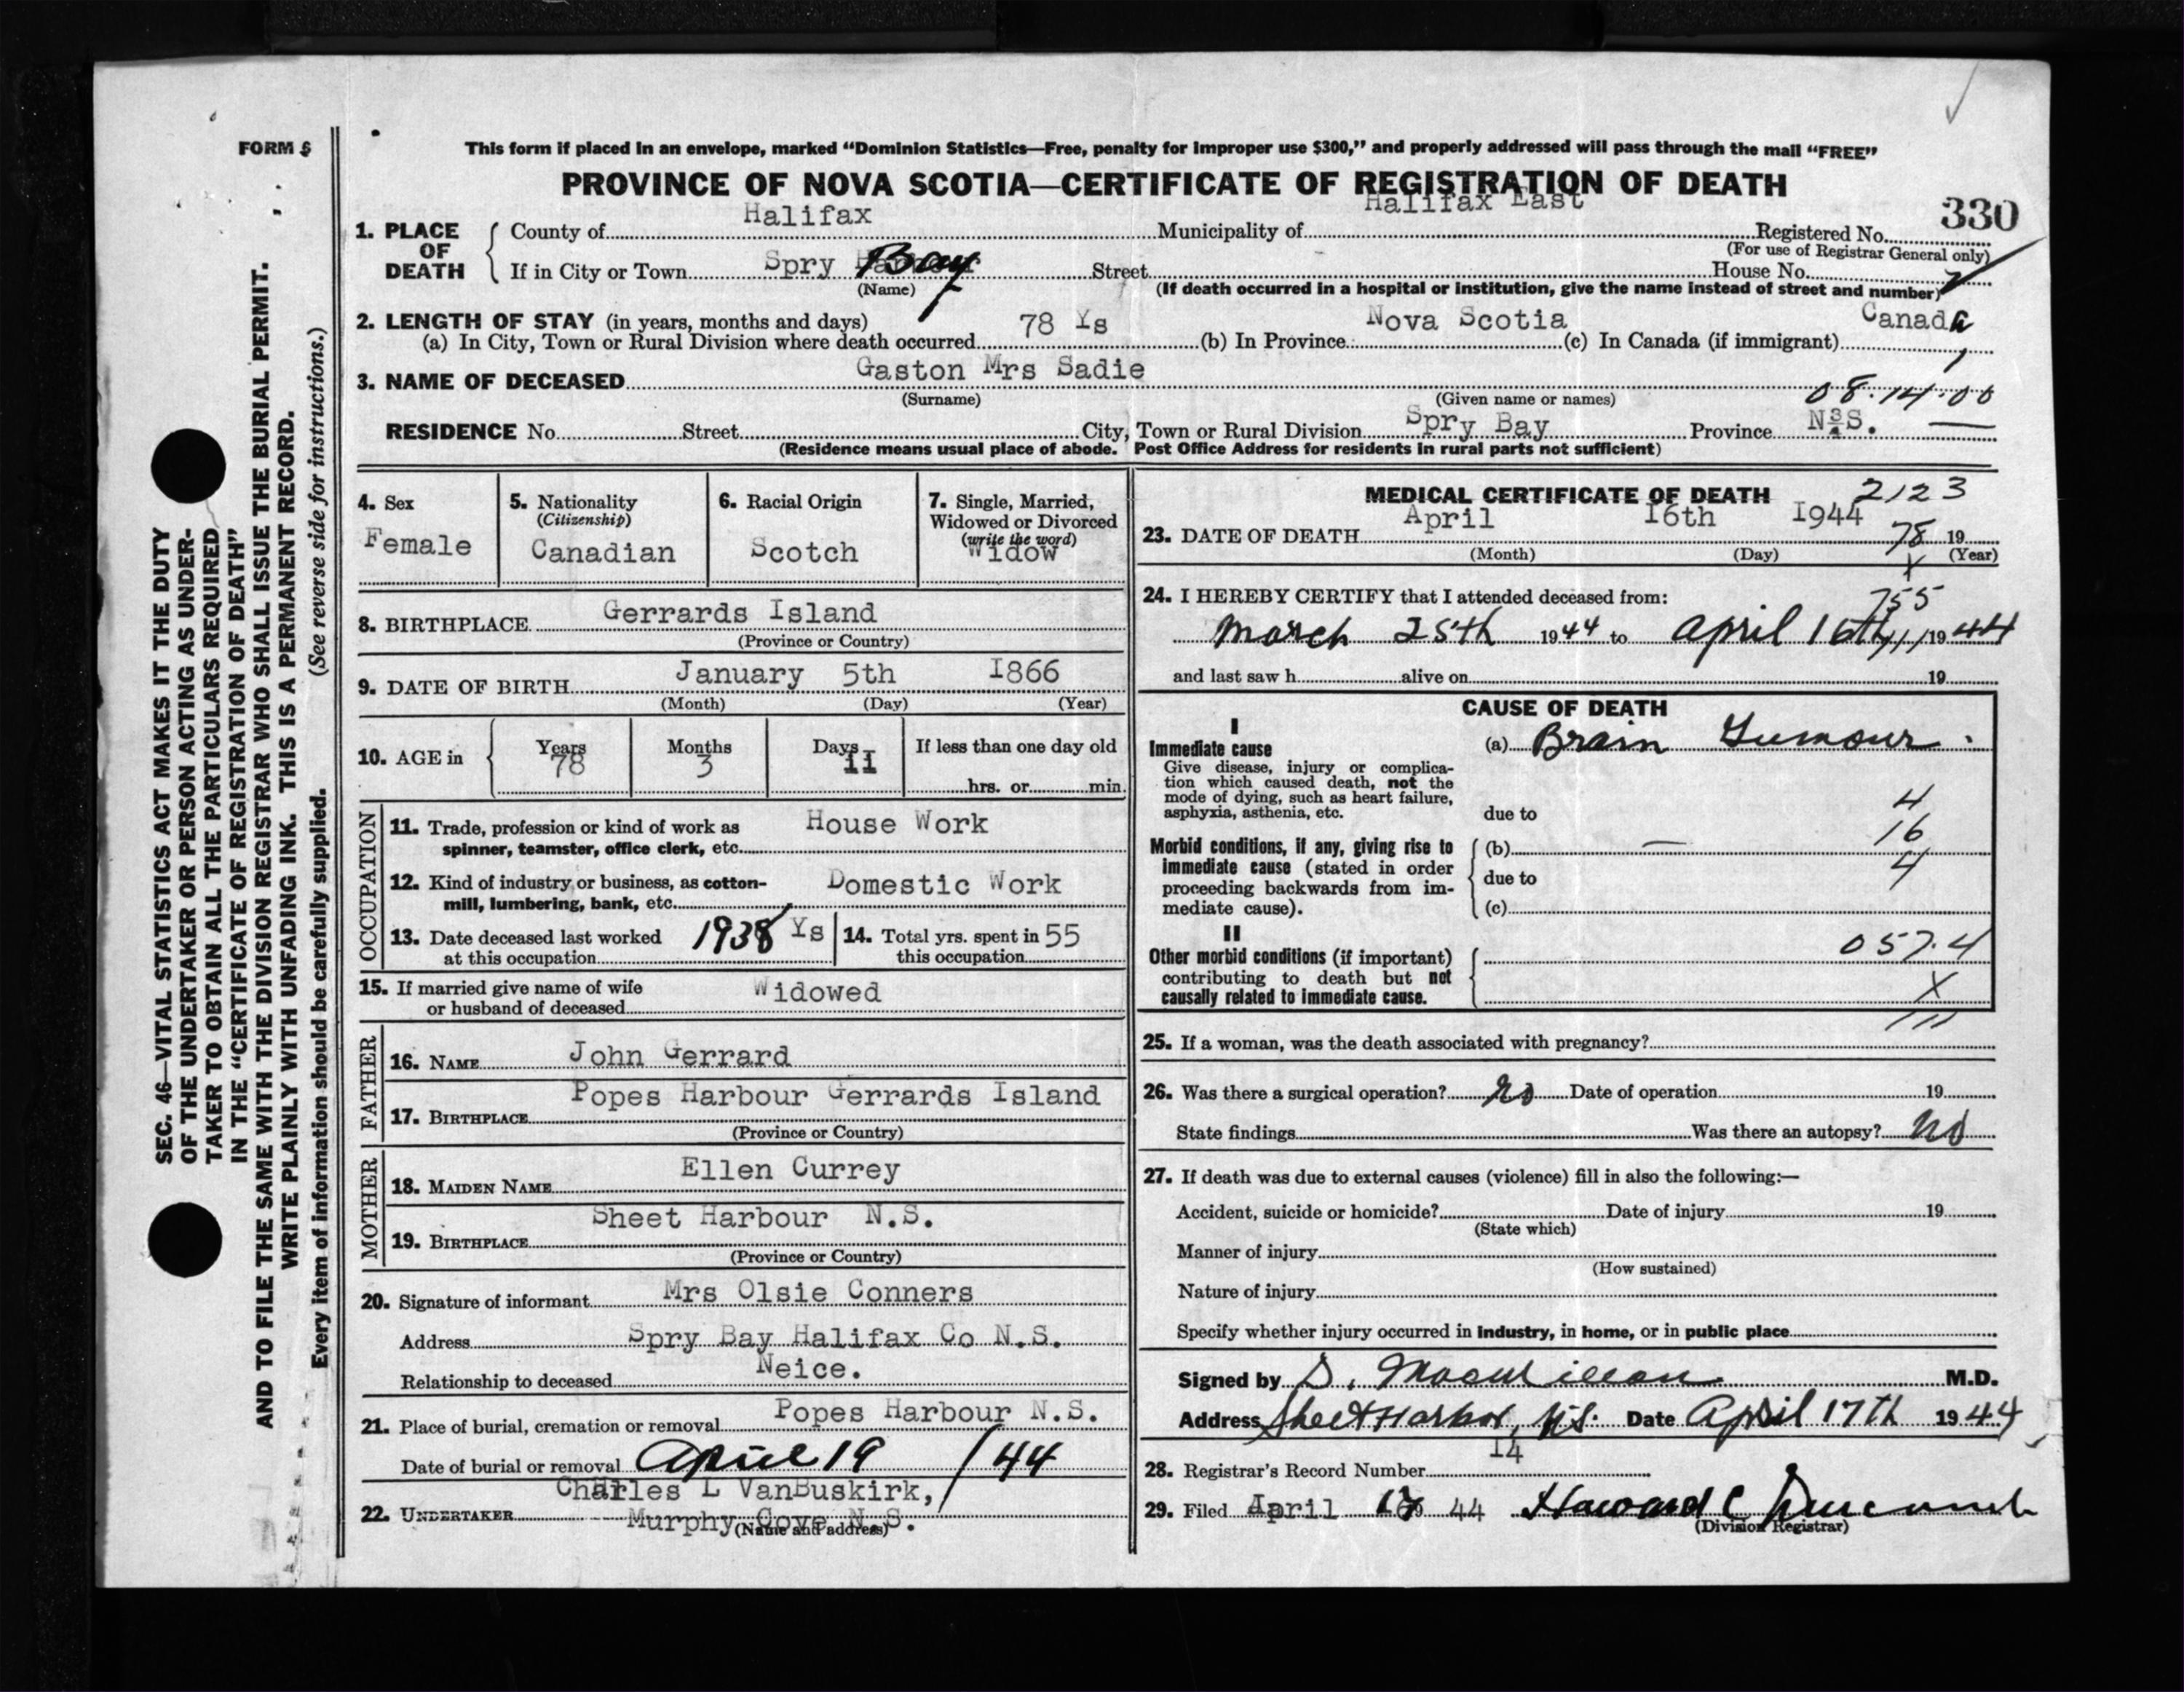 FORM 6
This form if placed in an envelope, marked “Dominion Statistics—Free, penalty for improper use $300,” and properly addressed will pass through the mail “FREE”
PROVINCE OF NOVA SCOTIA—CERTIFICATE OF REGISTRATION OF DEATH
330
1. PLACE OF DEATH County of Halifax Municipality of Halifax East Registered No.
(For use of Registrar General only)
If in City or Town Spry Bay Street House No.
(Name) (If death occurred in a hospital or institution, give the name instead of street and number)
2. LENGTH OF STAY (in years, months and days)
(a) In City, Town or Rural Division where death occurred 78 Ys (b) In Province Nova Scotia (c) In Canada (if immigrant) Canada
3. NAME OF DECEASED Gaston Mrs Sadie
(Surname) (Given name or names) 08.14.00
RESIDENCE No. Street City, Town or Rural Division Spry Bay Province N.S.
(Residence means usual place of abode. Post Office Address for residents in rural parts not sufficient)
4. Sex Female
5. Nationality (Citizenship) Canadian
6. Racial Origin Scotch
7. Single, Married, Widowed or Divorced (write the word) Widow
8. BIRTHPLACE Gerrards Island
(Province or Country)
9. DATE OF BIRTH January 5th I866
(Month) (Day) (Year)
10. AGE in Years 78 Months 3 Days II If less than one day old
hrs. or min.
OCCUPATION
11. Trade, profession or kind of work as spinner, teamster, office clerk, etc. House Work
12. Kind of industry or business, as cotton-mill, lumbering, bank, etc. Domestic Work
13. Date deceased last worked at this occupation 1938 Ys
14. Total yrs. spent in this occupation 55
15. If married give name of wife or husband of deceased Widowed
FATHER
16. NAME John Gerrard
17. BIRTHPLACE Popes Harbour Gerrards Island
(Province or Country)
MOTHER
18. MAIDEN NAME Ellen Currey
19. BIRTHPLACE Sheet Harbour N.S.
(Province or Country)
20. Signature of informant Mrs Olsie Conners
Address Spry Bay Halifax Co N.S.
Relationship to deceased Neice.
21. Place of burial, cremation or removal Popes Harbour N.S.
Date of burial or removal April 19/44
22. UNDERTAKER Charles L VanBuskirk,
Murphy Cove N.S.
(Name and address)
MEDICAL CERTIFICATE OF DEATH 2123
23. DATE OF DEATH April I6th I944 19
(Month) (Day) (Year)
78
X
24. I HEREBY CERTIFY that I attended deceased from: 755
March 25th 1944 to April 16th 1944
and last saw h alive on 19
CAUSE OF DEATH
I
Immediate cause (a) Brain Tumour.
Give disease, injury or complication which caused death, not the mode of dying, such as heart failure, asphyxia, asthenia, etc.
due to 4
16
Morbid conditions, if any, giving rise to immediate cause (stated in order proceeding backwards from immediate cause).
(b) —
due to 4
(c)
II
Other morbid conditions (if important) contributing to death but not causally related to immediate cause.
057.4
X
25. If a woman, was the death associated with pregnancy?
26. Was there a surgical operation? no Date of operation 19
State findings Was there an autopsy? no
27. If death was due to external causes (violence) fill in also the following:—
Accident, suicide or homicide? Date of injury 19
(State which)
Manner of injury
(How sustained)
Nature of injury
Specify whether injury occurred in industry, in home, or in public place
Signed by D. MacMillan M.D.
Address Sheet Harbor, N.S. Date April 17th 1944
28. Registrar's Record Number I4
29. Filed April 17 44 Howard C
(Division Registrar)
SEC. 46—VITAL STATISTICS ACT MAKES IT THE DUTY
OF THE UNDERTAKER OR PERSON ACTING AS UNDER-
TAKER TO OBTAIN ALL THE PARTICULARS REQUIRED
IN THE “CERTIFICATE OF REGISTRATION OF DEATH”
AND TO FILE THE SAME WITH THE DIVISION REGISTRAR WHO SHALL ISSUE THE BURIAL PERMIT.
WRITE PLAINLY WITH UNFADING INK. THIS IS A PERMANENT RECORD.
Every item of information should be carefully supplied. (See reverse side for instructions.)